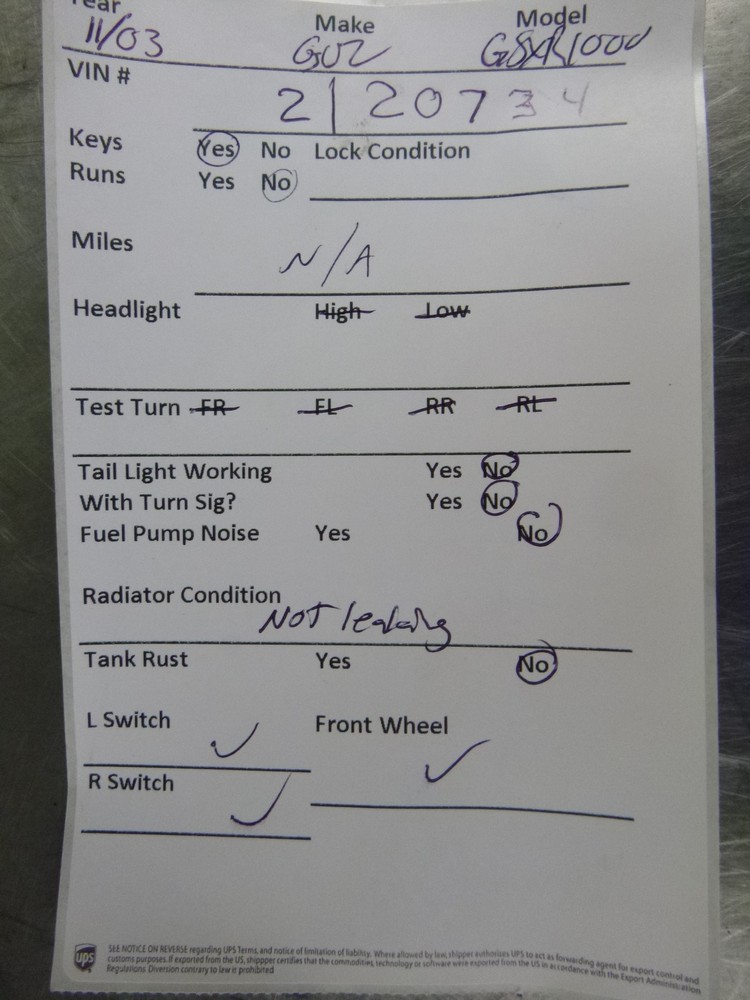 Year Make Model
11/03 GUZ GSXR1000
VIN #
2 | 20734
Keys Yes No Lock Condition
Runs Yes No
Miles N/A
Headlight High Low
Test Turn FR FL RR RL
Tail Light Working Yes No
With Turn Sig? Yes No
Fuel Pump Noise Yes No
Radiator Condition
Not leaking
Tank Rust Yes No
L Switch Front Wheel
R Switch
ups
SEE NOTICE ON REVERSE regarding UPS Terms, and notice of limitation of liability. Where allowed by law, shipper authorizes UPS to act as forwarding agent for export control and
customs purposes. If exported from the US, shippper certifies that the commodities, technology or software were exported from the US in accordance with the Export Administration
Regulations. Diversion contrary to law is prohibited.